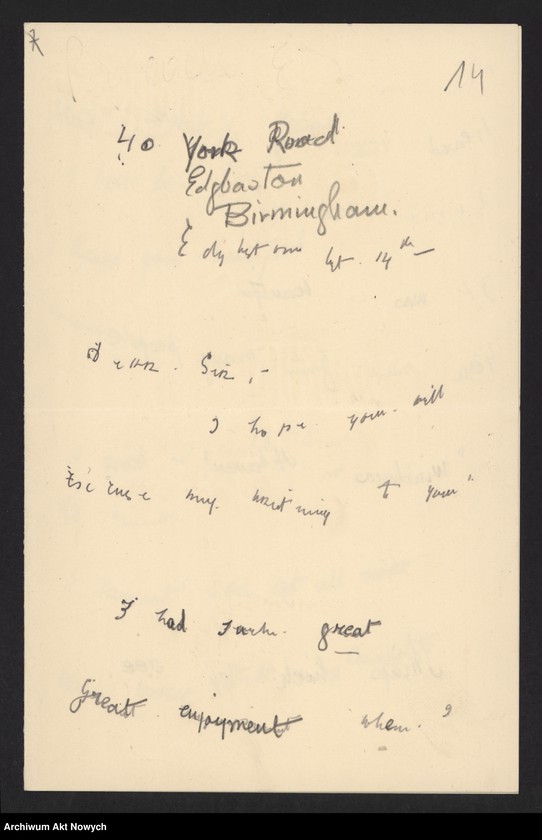 14
40 York Road
Edgbaston
Birmingham.
14th
Dear Sir,-
I hope you will
Excuse my writing to you.
I had such great
Great enjoyment when I
Archiwum Akt Nowych